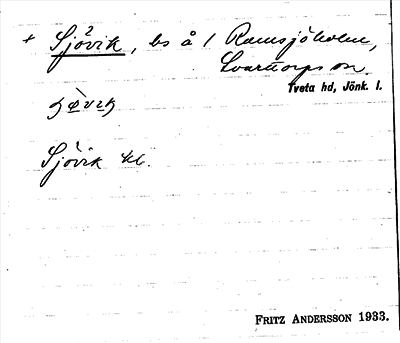 + Sjövik, bs å / Ramsjöholm,
Svarttorps sn
Tveta hd, Jönk. l.
Sjövik
FRITZ ANDERSSON 1933.